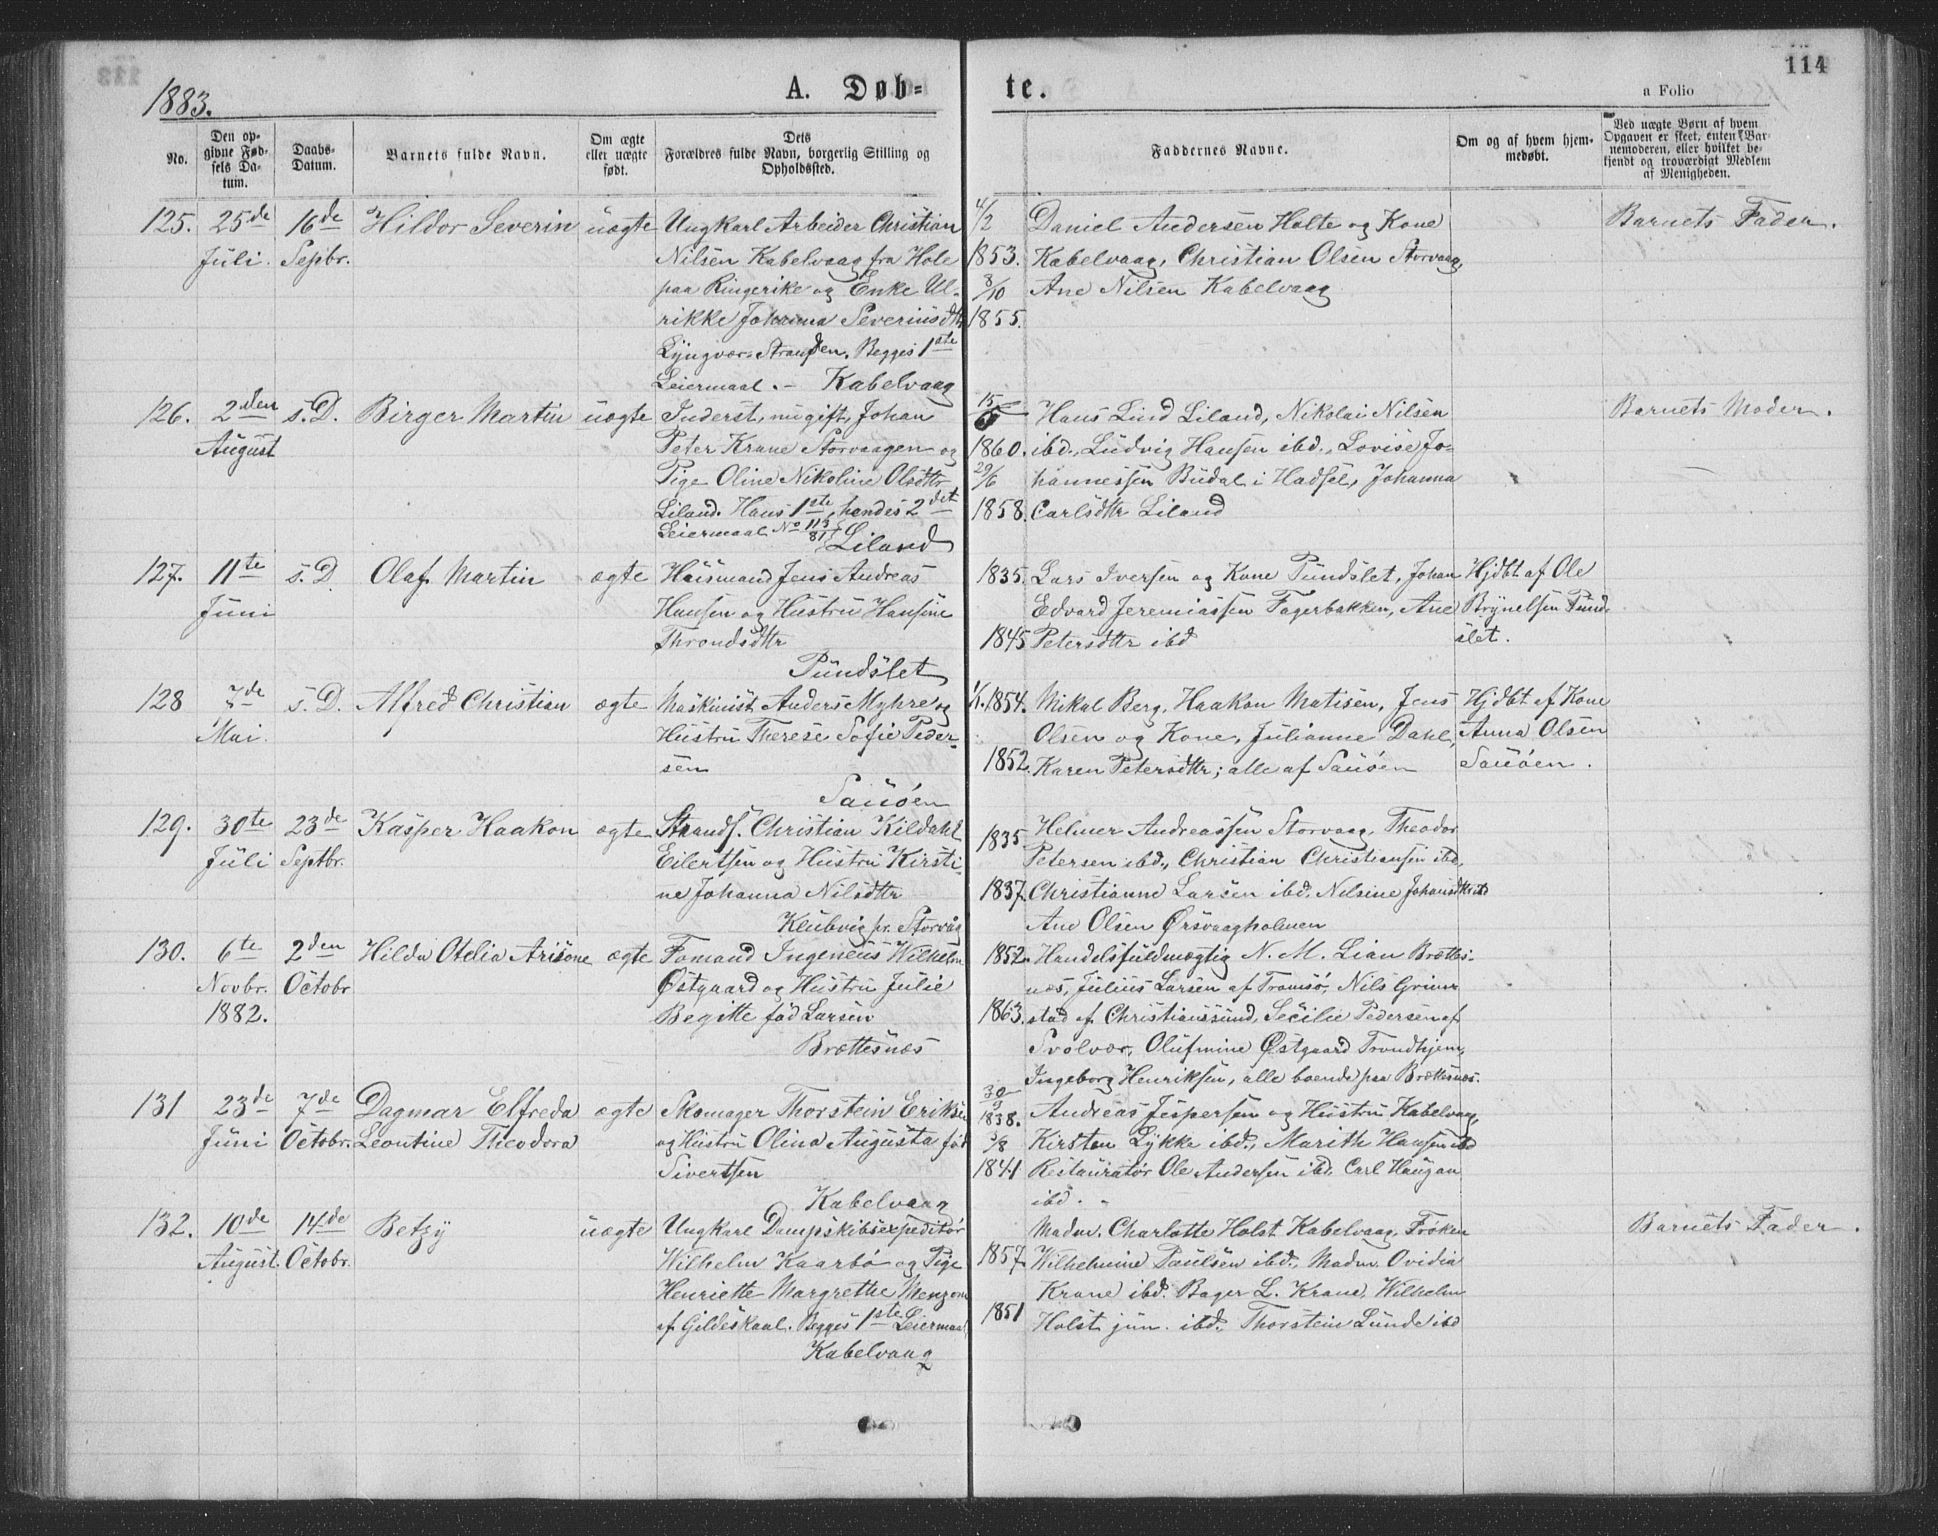 114
1883.
A. Døb-
te.
a Folio
No.
Den op-
givne Fød-
sels Da-
tum.
Daabs-
Datum.
Barnets fulde Navn.
Om ægte
eller uægte
født.
Dets
Forældres fulde Navn, borgerlig Stilling og
Opholdssted.
Faddernes Navne.
Om og af hvem hjem-
medøbt.
Ved uægte Børn af hvem
Opgaven er skeet, enten Bar-
nemoderen, eller hvilket be-
kjendt og troværdigt Medlem
af Menigheden.
125. 25de 16de Hildor Severin uægte Ungkarl Arbeider Christian 4/2 Daniel Andersen Holte og Kone Barnets Fader.
Juli. Septbr. Nilsen Kabelvaag fra Hole 1853. Kabelvaag, Christian Olsen Storvaag,
paa Ringerike og Enke Ul- 3/10 Ane Nilsen Kabelvaag
rikke Johanna Severinsdtr 1855.
Lyngvær-Stranden. Begges 1ste
Leiermaal. – Kabelvaag
126. 2den s.D. Birger Martin uægte Inderst, nu gift, Johan 15/ Hans Lind Liland, Nikolai Nilsen Barnets Moder.
August Peter Krane Storvaagen og 1860. ibd., Ludvig Hansen ibd., Lovise Jo-
Pige Oline Nikoline Olsdtr 29/6 hannessen Budal i Hadsel, Johanna
Liland. Hans 1ste, hendes 2det 1858. Carlsdtr Liland
Leiermaal No 113/81 Liland
127. 11te s.D. Olaf Martin ægte Huusmand Jens Andreas 1835. Lars Iversen og Kone Pundslet, Johan Hjdbt af Ole
Juni Hansen og Hustru Hansine Edvard Jeremiassen Fagerbakken, Ane Brynelsen Pund-
Throndsdtr 1845 Petersdtr ibd slet.
Pundslet
128 7de s.D. Alfred Christian ægte Maskinist Anders Myhre og 1/1.1854. Mikal Berg, Haakon Matisen, Jens Hjdbt af Kone
Mai. Hustru Therese Sofie Peder- Olsen og Kone, Julianne Dahl, Anna Olsen
sen 1852. Karen Petersdtr; alle af Sauøen Sauøen.
Sauøen
129. 30te 23de Kasper Haakon ægte Strands. Christian Kildahl 1835 Helmer Andreassen Storvaag, Theodor
Juli Septbr. Eilertsen og Hustru Kirsti- Petersen ibd., Christian Christiansen ibd,
ne Johanna Nilsdtr 1837. Christianne Larsen ibd. Nelsine Johansdtr ibd
Klubvig pr. Storvåg Ane Olsen Ørsvaagholmen
130. 6te 2den Hilda Otelia Arisone ægte Fomand Ingeneus Wilhelm 1852. Handelsfuldmægtig N. M. Lian Brættes-
Novbr. Octobr Østgaard og Hustru Julie næs, Julius Larsen af Tromsø, Nils Grim-
1882. Begitte fød Larsen 1863. stad af Christianssund, Secilie Pedersen af
Brættesnæs Svolvær, Olufmine Østgaard Trondhjem,
Ingeborg Henriksen, alle boende paa Brættesnæs.
131 23de 7de Dagmar Elfreda ægte Skomager Thorstein Eriksen 30/9 1838. Andreas Jespersen og Hustru Kabelvaag,
Juni Octobr. Leontine Theodora og Hustru Olina Augusta fød 3/8 Kirsten Lykke ibd., Marith Hansen ibd
Sivertsen 1841 Restauratør Ole Andersen ibd, Carl Haugan
Kabelvaag ibd.
132. 10de 14de Betzy uægte Ungkarl Dampskibsexpeditør Madm. Charlotte Holst Kabelvaag, Frøken Barnets Fader.
August. Octobr. Wilhelm Kaarbø og Pige 1857. Wilhelmine Paulsen ibd., Madm. Ovidia
Henriette Margrethe Menzoni Krane ibd. Bager L. Krane, Wilhelm
af Gildeskaal. Begges 1ste Leiermaal 1851 Holst jun. ibd., Thorstein Lunde ibd
Kabelvaag